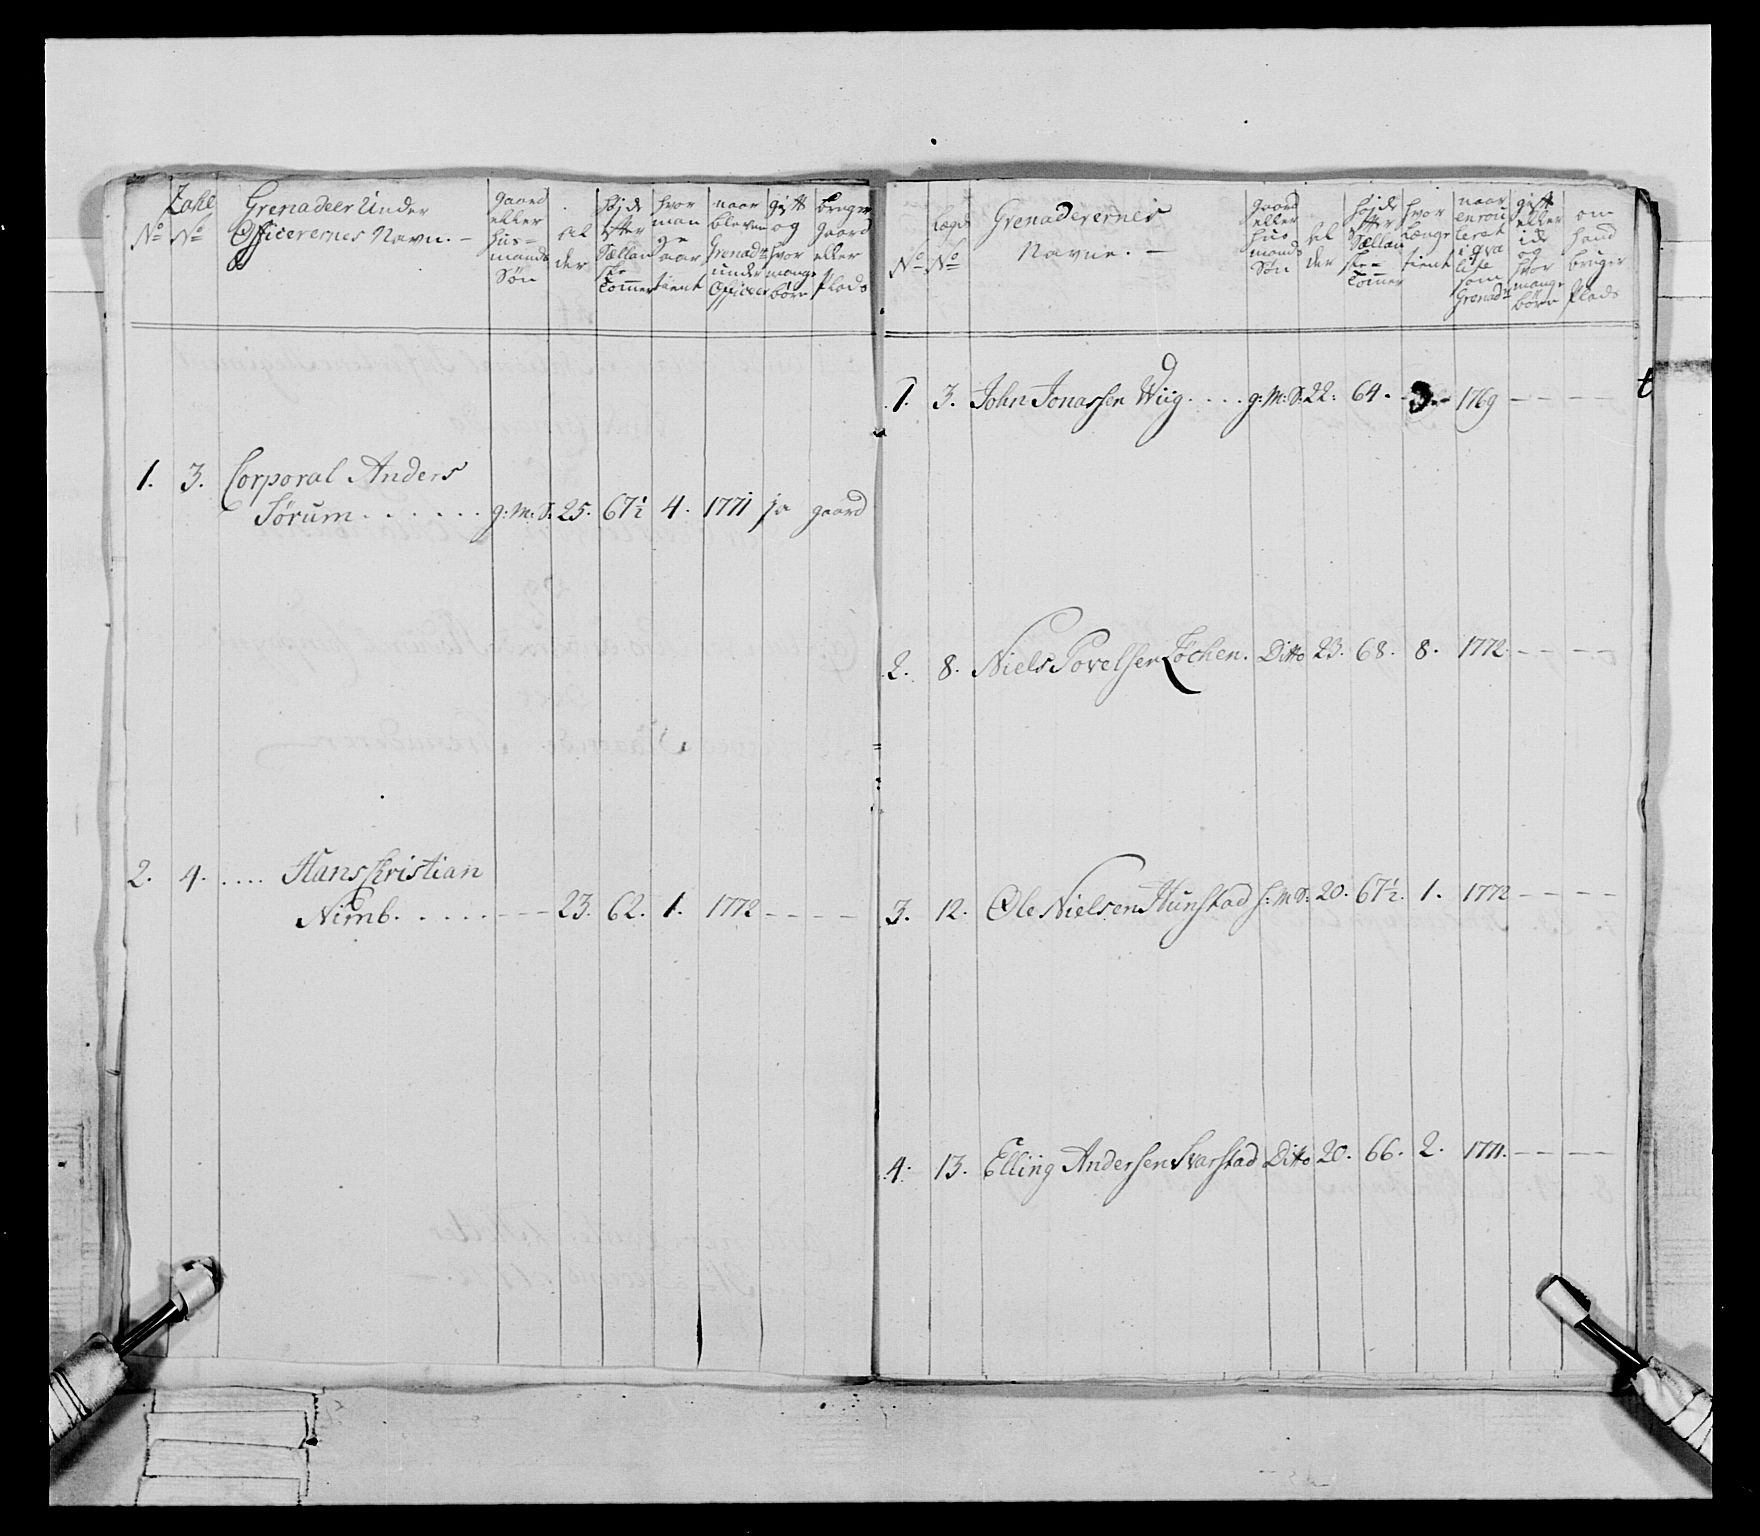 Zahl
No No
Grenadeer Under
Officerernes Navn. –
gaard
eller
hus=
mands
Søn
al
der
højde
efter
Sællan
ske
tommer
hvor
man
ge
aar
tient
naar
bleven
Grenadr
under
Officeer
gift
og
hvor
mange
børn
bruger
gaard
eller
Plads
1. 3. Corporal Anders
Sørum . . . . . . g: M: S: 25. 67½ 4. 1771 ja gaard
2. 4. . . . . Hans Christian
Nimb. . . . . . – – – 23. 62. 1. 1772 – – – –
Lægd
No No
Grenaderernes
Navne. –
gaard
eller
hus
mands
Søn
al
der
højde
efter
Sællan
ske=
tommer
hvor
længe
tient
naar
enrou
leret
i qva
lite
som
Grenadr
gift
eller
ide
og
hvor
mange
børn
om
hand
bruger
Plads
1. 3. John Jonassen Wiig . . . . g: M: S: 22. 64. 3. 1769 – – – –
2. 8. Niels Povelsen Løchen. Ditto 23. 68. 8. 1772. – – – –
3. 12. Ole Nielsen Hunstad h: M S: 20. 67½. 1. 1772 – – – –
4. 13. Elling Andersen Svarstad Ditto 20. 66. 2. 1771. – – – –